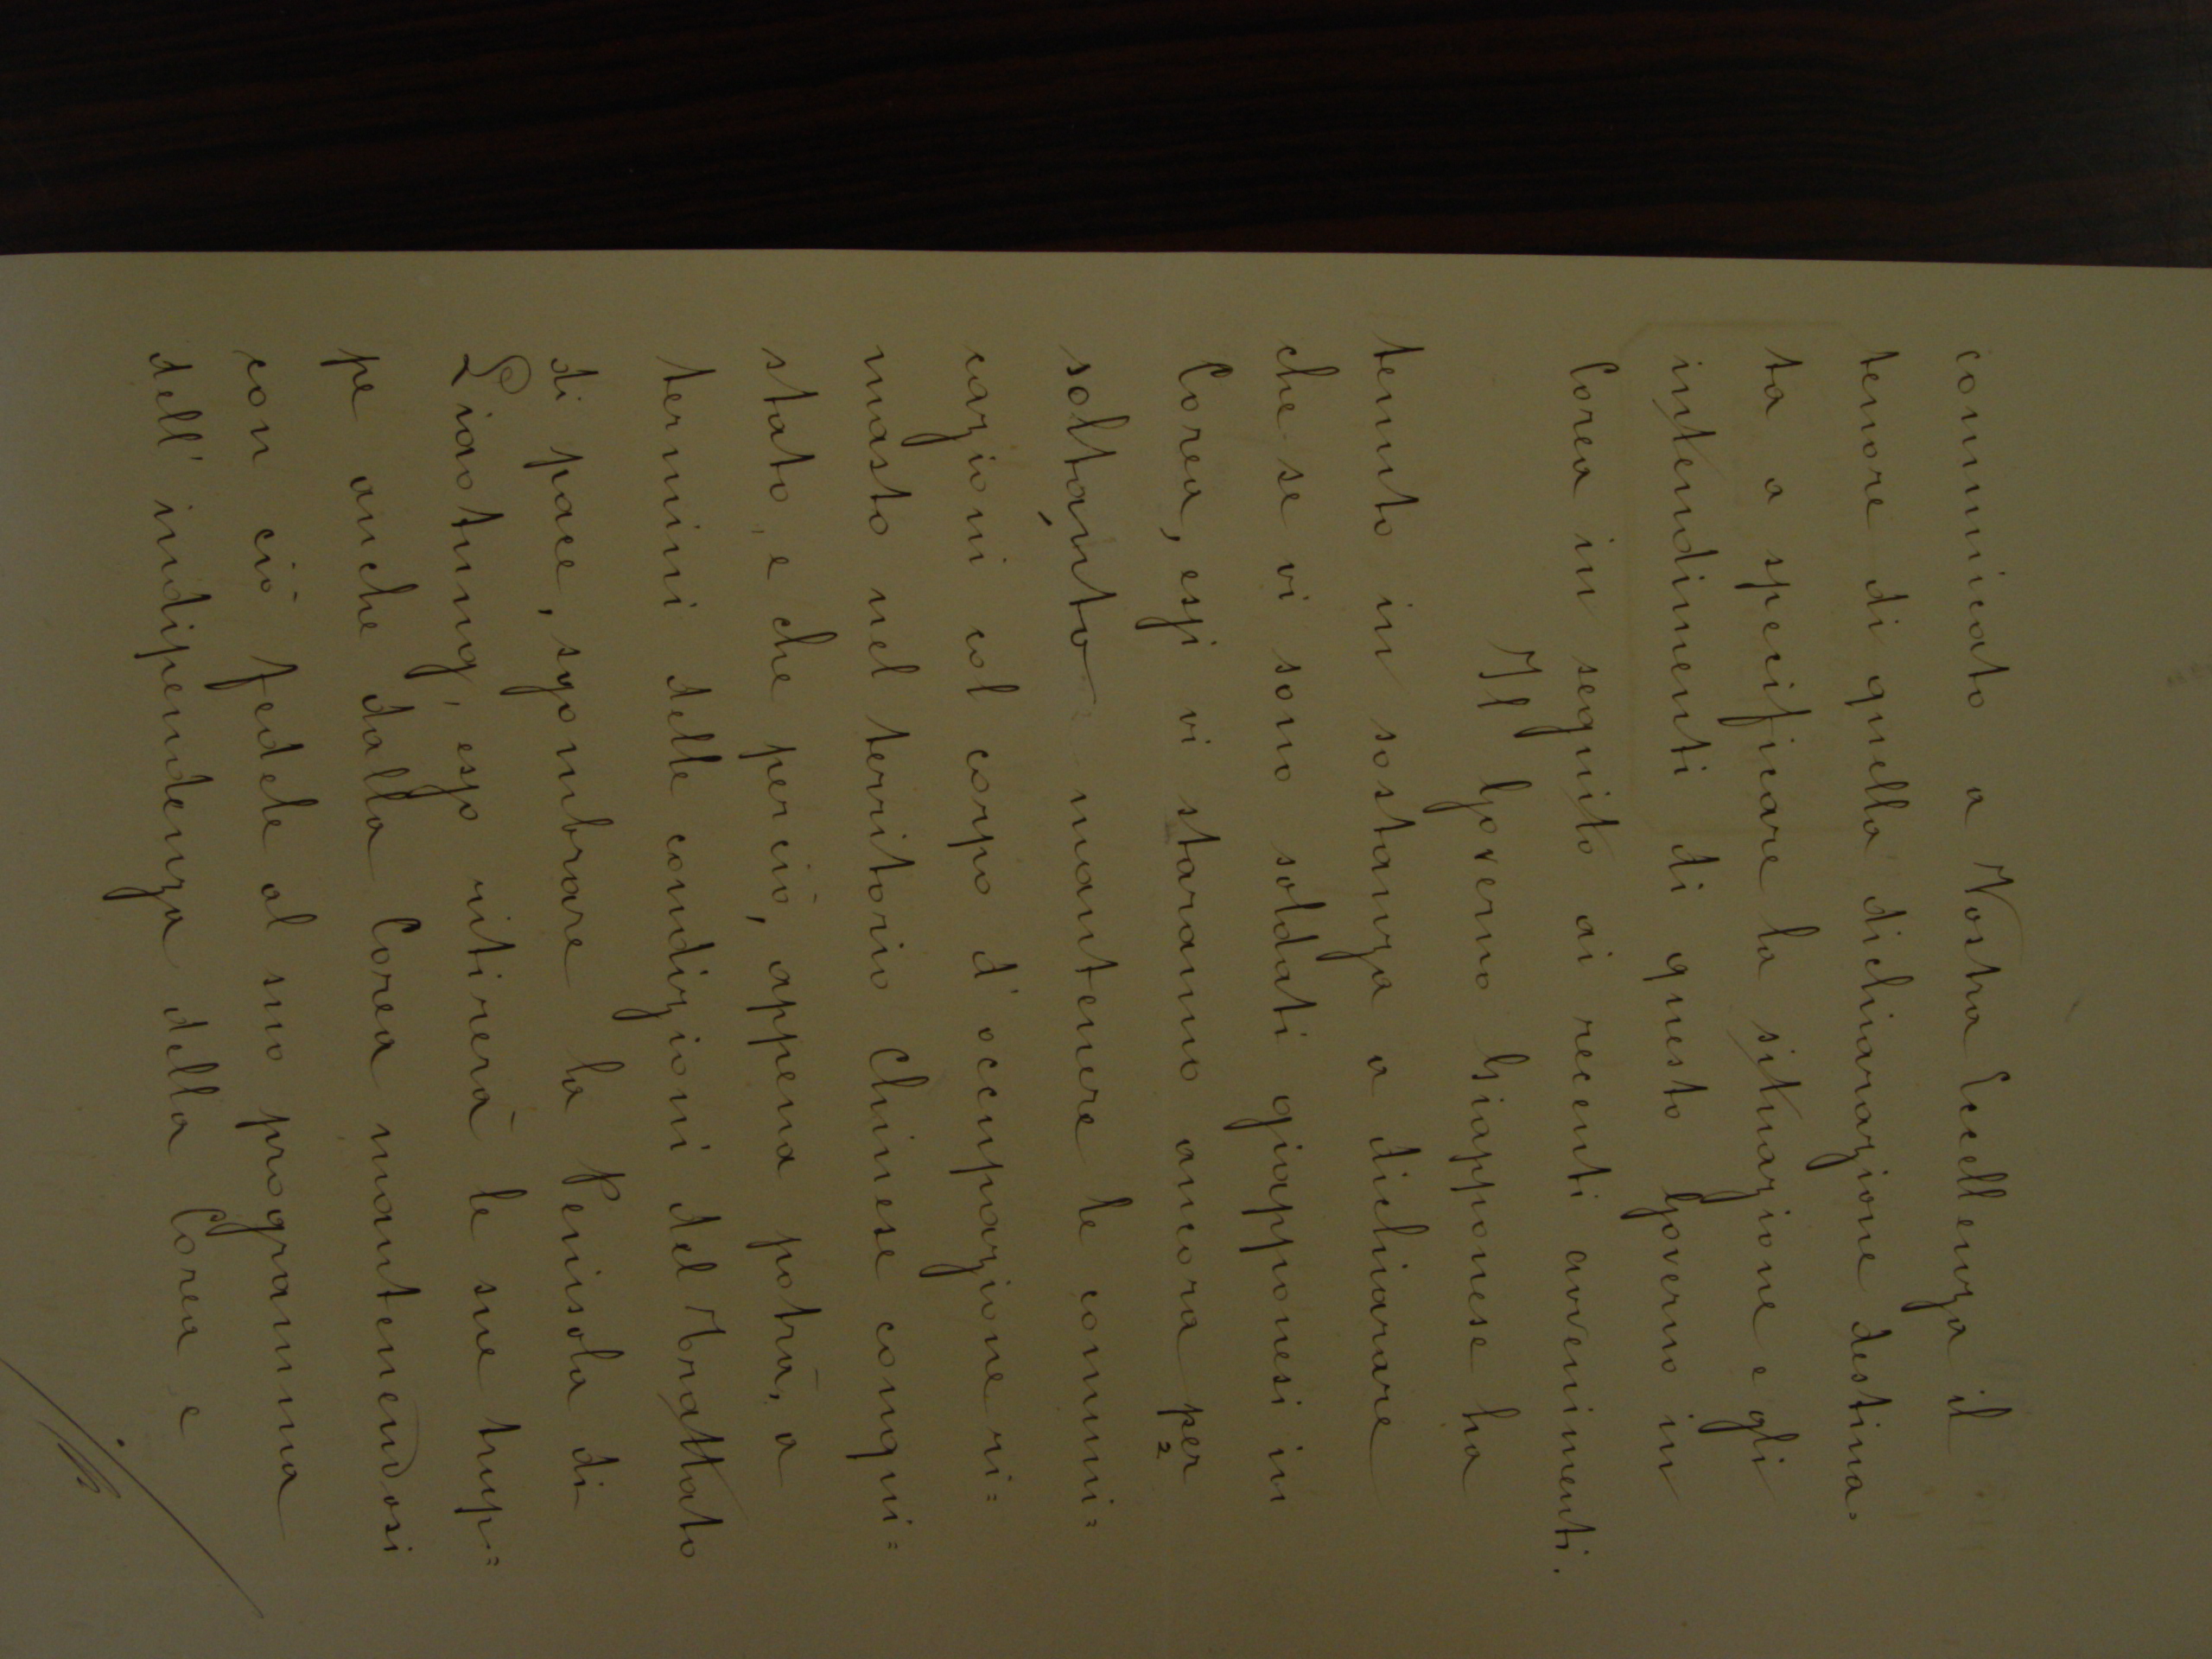 communicato a Vostra Eccellenza il
tenore di quella dichiarazione destina=
ta a specificare la situazione e gli
intendimenti di questo Governo in
Corea in seguito ai recenti avvenimenti.
Il Governo Giapponese ha
tenuto in sostanza a dichiarare
che se vi sono soldati giapponesi in
Corea, essi vi staranno ancora per
soltanto mantenere le comuni=
cazioni col corpo d'occupazione ri=
masto nel territorio Chinese conqui=
stato e che perciò, appena potrà, a
termini delle condizioni del Trattato
di pace, sgombrare la Penisola di
Liaotung, esso ritirerà le sue trup=
pe anche dalla Corea mantenendosi
con ciò fedele al suo programma
dell'indipendenza della Corea e